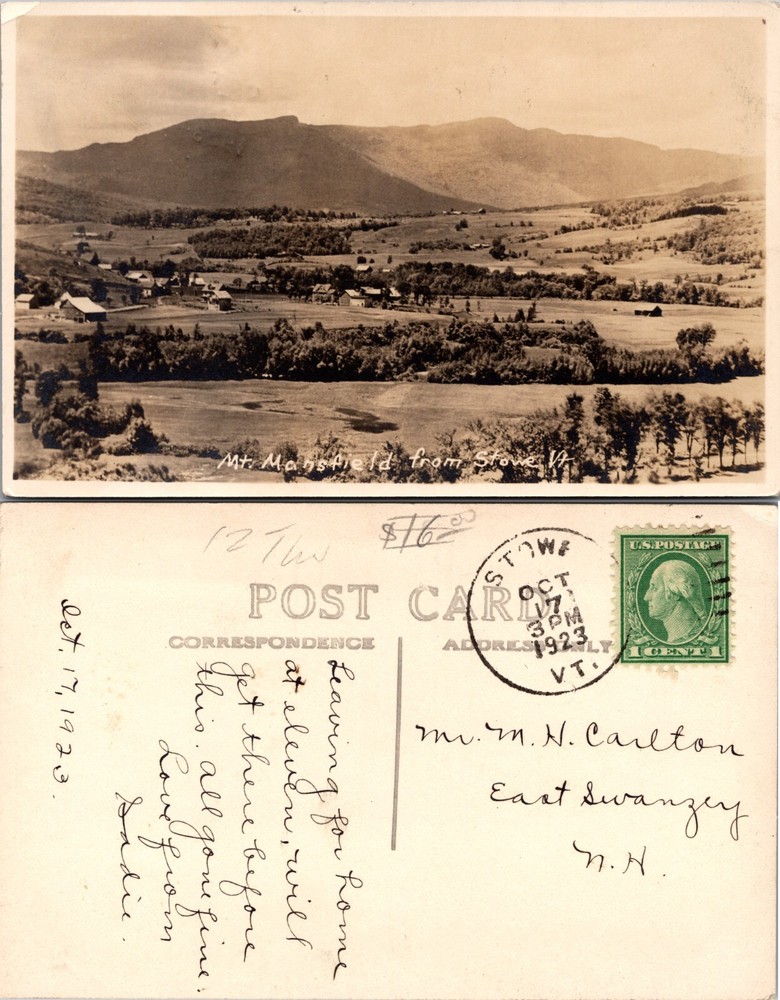 Mt. Mansfield from Stowe Vt
$16.00
POST CARD
CORRESPONDENCE
ADDRESS ONLY
STOWE
OCT
17
3 PM
1923
VT.
U.S. POSTAGE
1 CENT 1
Oct. 17, 1923.
Leaving for home
at eleven, will
get there before
this. all gone fine.
Love from
Mr. M. H. Carlton
East Swanzey
N.H.